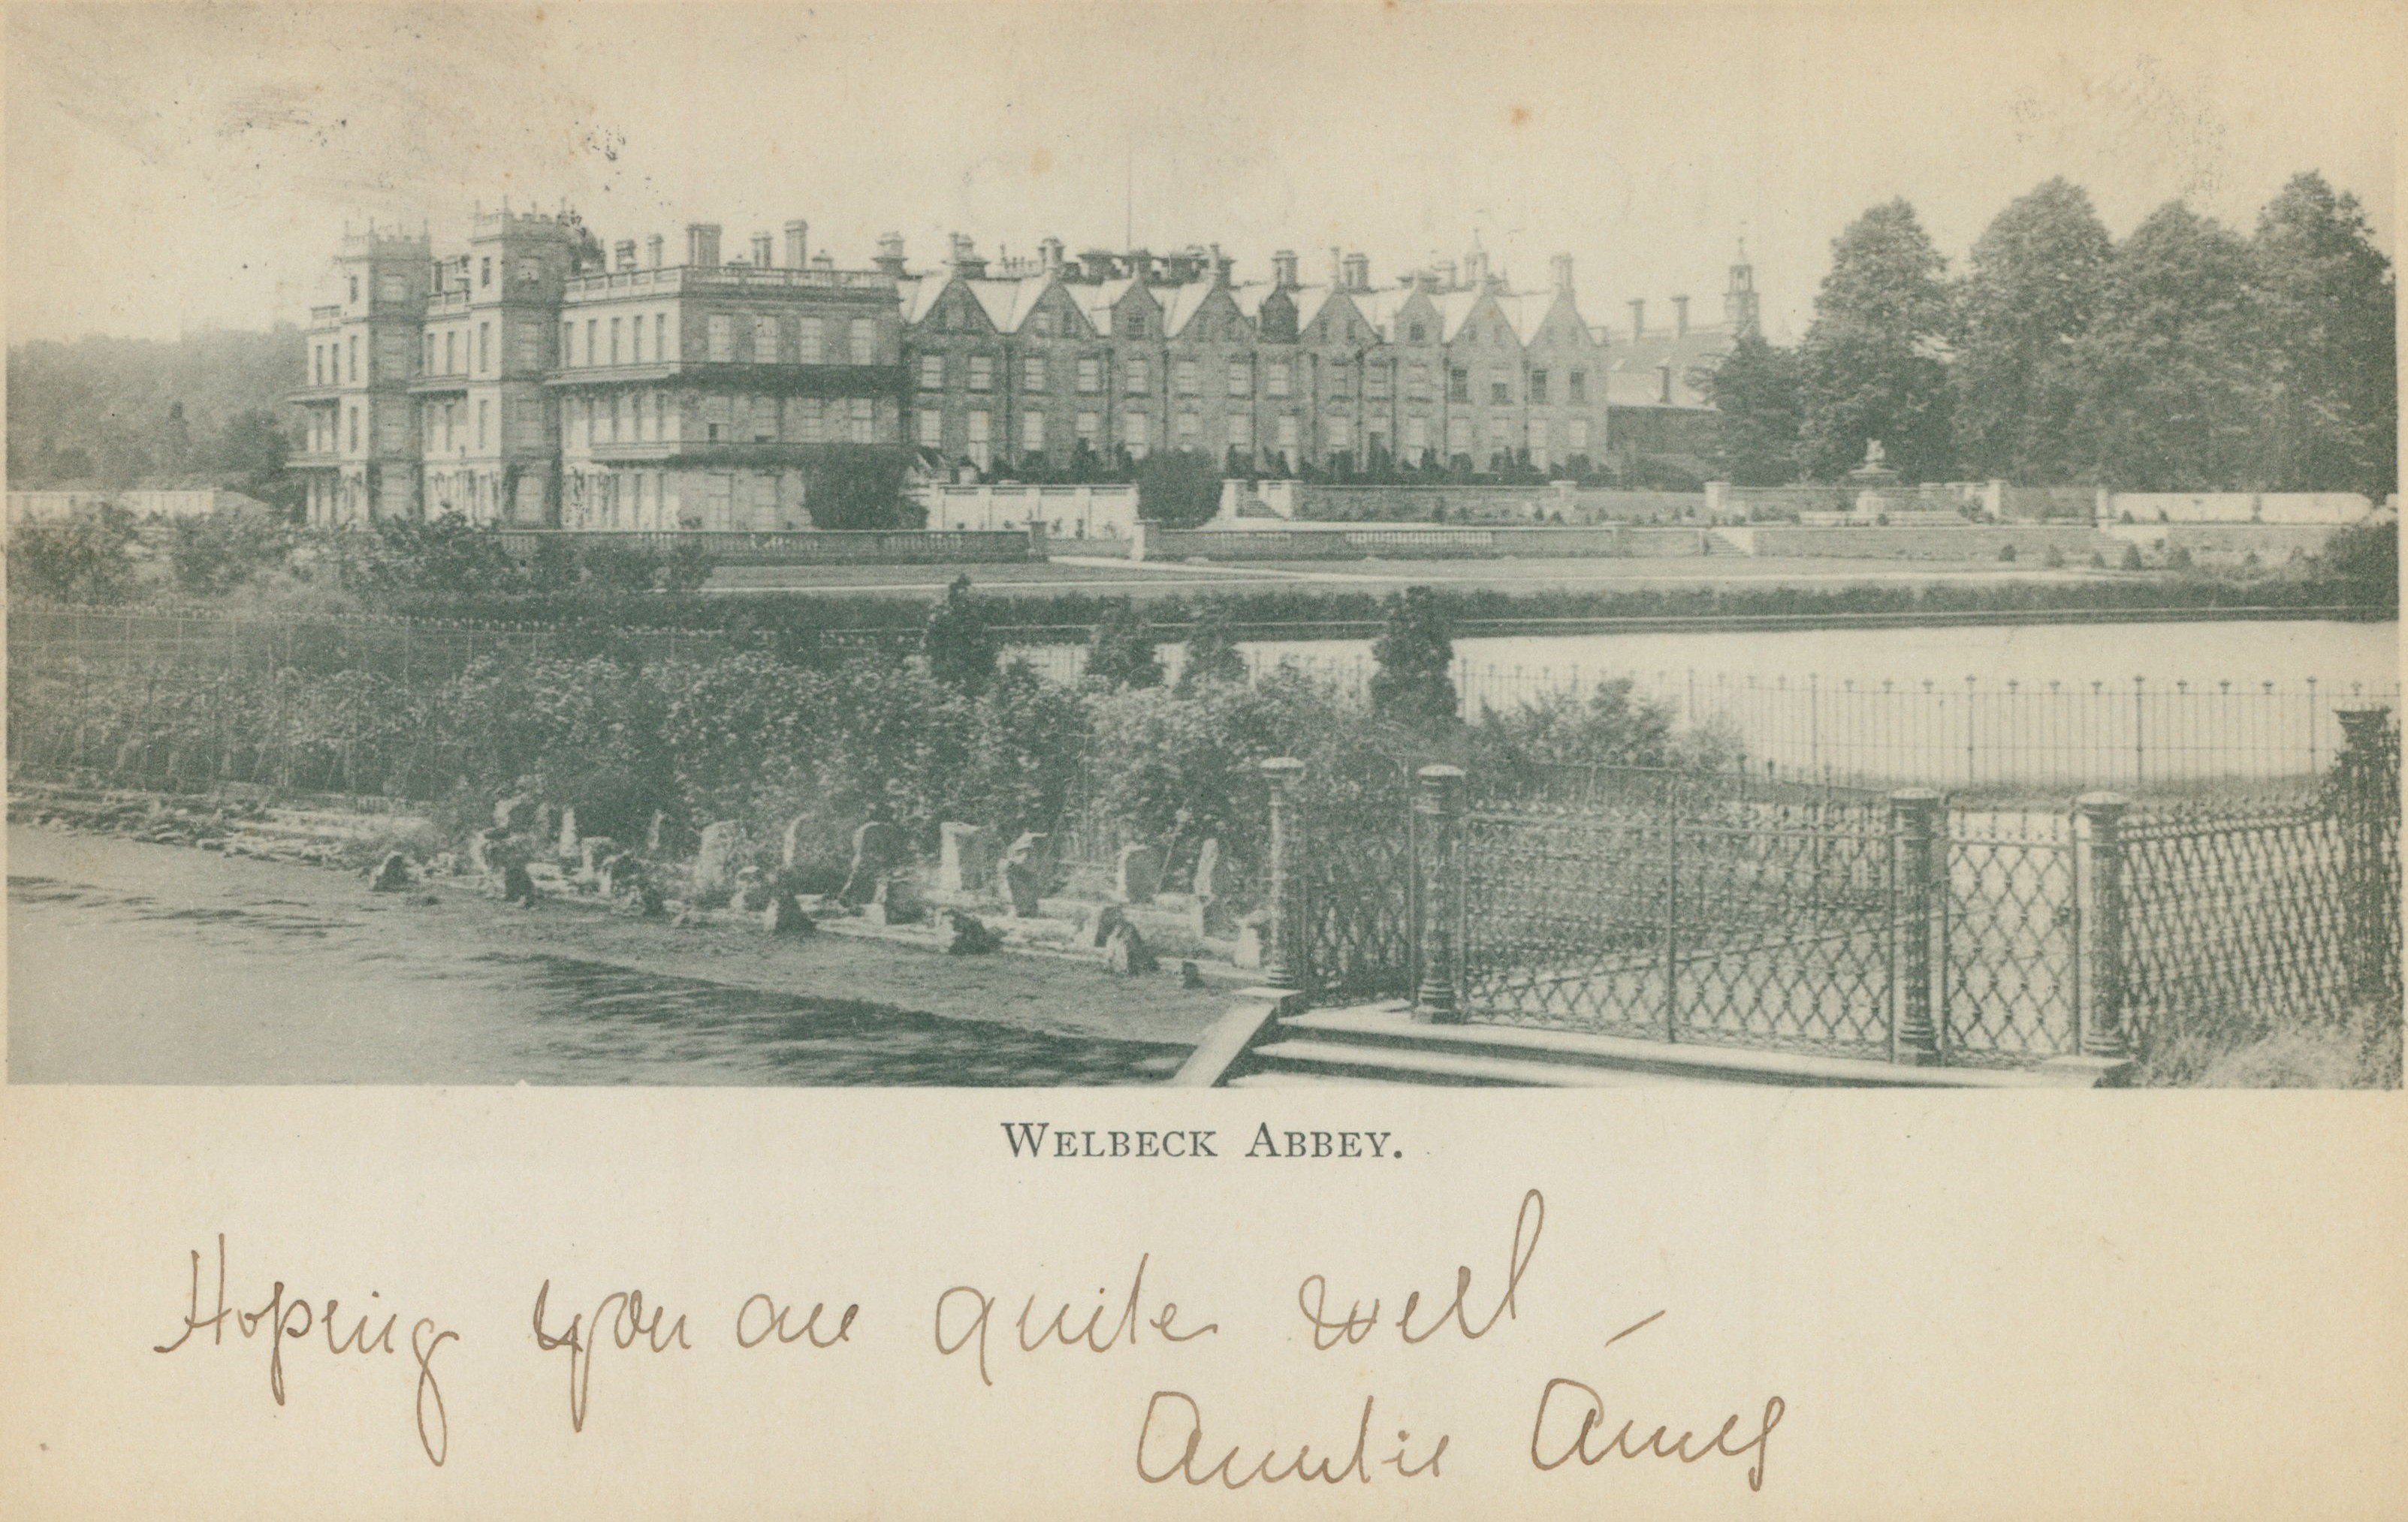 WELBECK ABBEY.
Hoping you are quite well –
Auntie